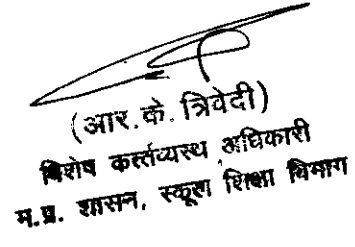 (आर.के. त्रिवेदी)
विशेष कर्त्तव्यस्थ अधिकारी
म.प्र. शासन, स्कूल शिक्षा विभाग